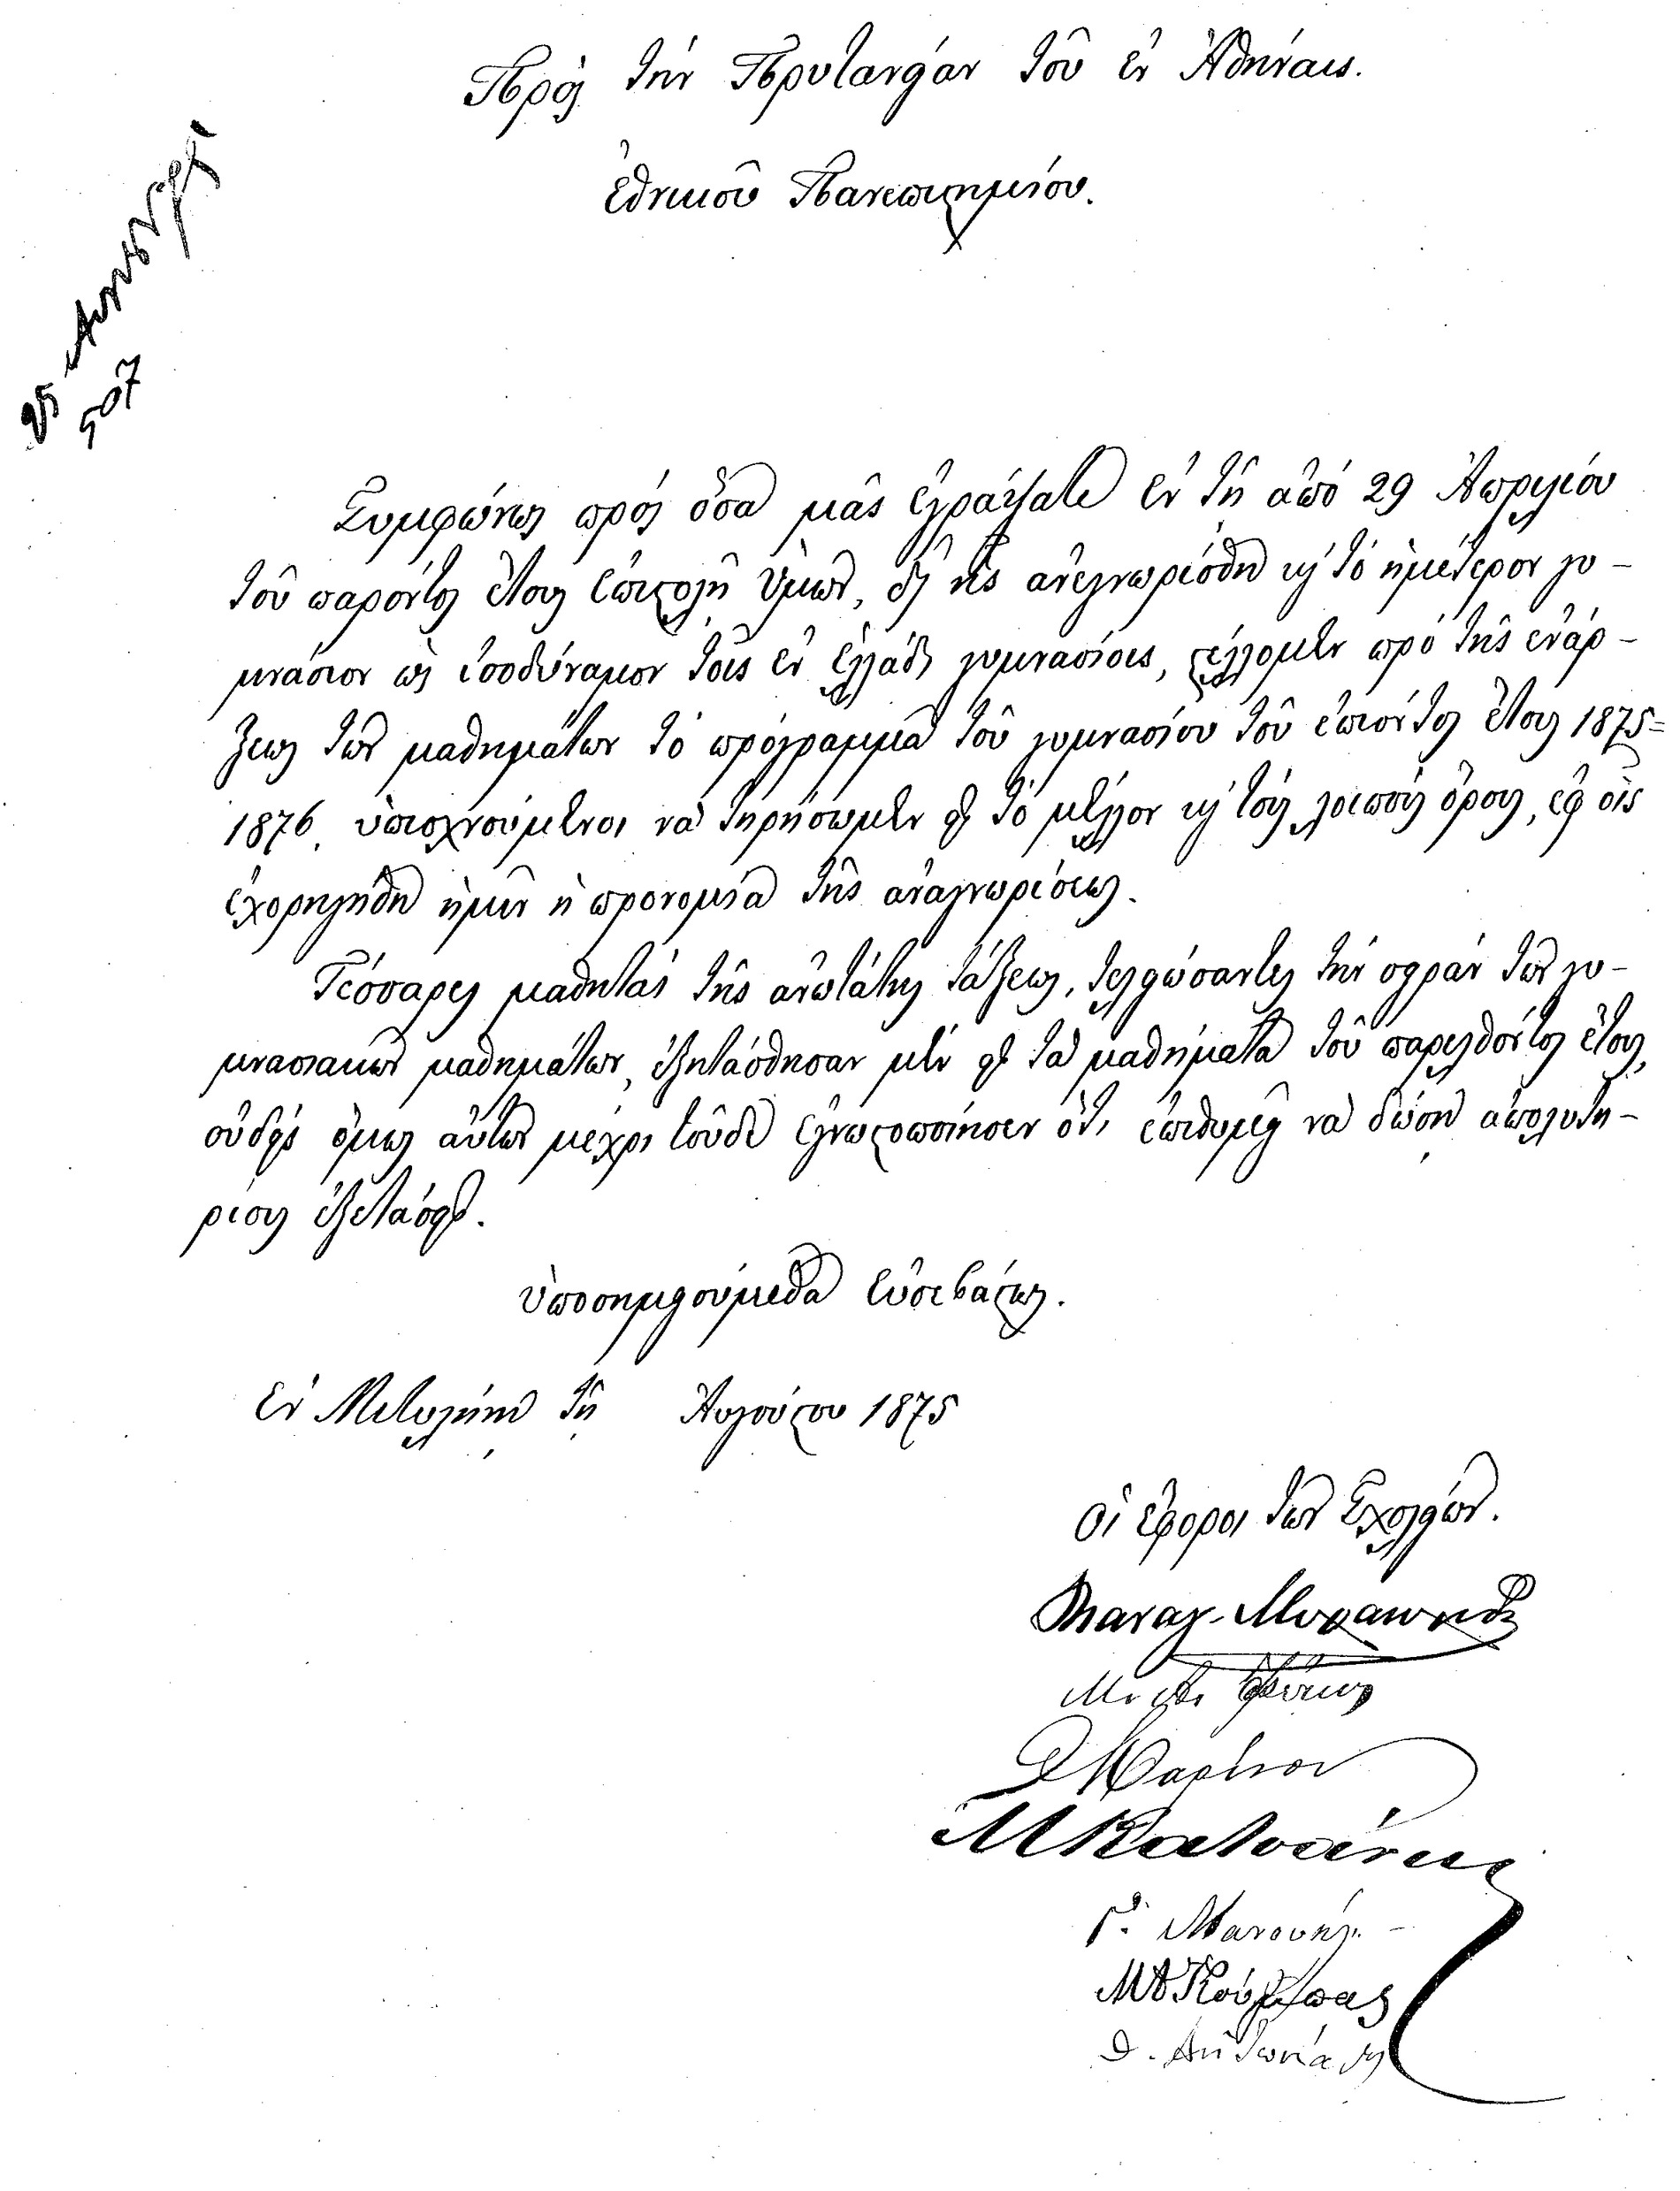 Πρὸς τὴν Πρυτανείαν τοῦ ἐν Ἀθήναις.
Ἐθνικοῦ Πανεπιστημίου.
507
Συμφώνως πρὸς ὅσα μᾶς ἐγράψατε ἐν τῇ ἀπὸ 29 Ἀπριλίου
τοῦ παρόντος ἔτους ἐπιστολῇ ὑμῶν, δι' ἧς ἀνεγνωρίσθη καὶ τὸ ἡμέτερον γυ-
μνάσιον ὡς ἰσοδύναμον τοῖς ἐν Ἑλλάδι γυμνασίοις, στέλλομεν πρὸ τῆς ἐνάρ-
ξεως τῶν μαθημάτων τὸ πρόγραμμα τοῦ γυμνασίου τοῦ ἐπιόντος ἔτους 1875=
1876, ὑπισχνούμενοι νὰ τηρήσωμεν εἰς τὸ μέλλον καὶ τοὺς λοιποὺς ὅρους, ἐφ' οἷς
ἐχορηγήθη ἡμῖν ἡ προνομία τῆς ἀναγνωρίσεως.
Τέσσαρες μαθηταὶ τῆς ἀνωτάτης τάξεως, τελειώσαντες τὴν σειρὰν τῶν γυ-
μνασιακῶν μαθημάτων, ἐξητάσθησαν μὲν εἰς τὰ μαθήματα τοῦ παρελθόντος ἔτους,
οὐδεὶς ὅμως αὐτῶν μέχρι τοῦδε ἐγνωστοποίησεν ὅτι ἐπιθυμεῖ νὰ δώσῃ ἀπολυτη-
ρίους ἐξετάσεις.
ὑποσημειούμεθα εὐσεβάστως.
Ἐν Μιτυλήνῃ τῇ Αὐγούστου 1875
Οἱ ἔφοροι τῶν Σχολείων.
Μ
Μ
Γ. Μανουήλ
Μ
Δ. Ἀντωνιάδης